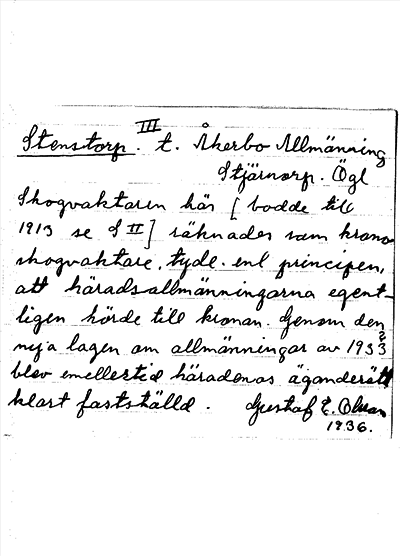 III
Stenstorp. t. Åkerbo Allmänning
Stjärnorp. Ögl
Skogvaktaren här [bodde till
1913 se S II] räknades som krono-
skogvaktare, tyde. enl principen,
att häradsallmänningarna egent-
ligen hörde till kronan. Genom den
nya lagen om allmänningar av 1933
blev emellertid häradenas äganderätt
klart fastställd. Gustaf E.
1936.